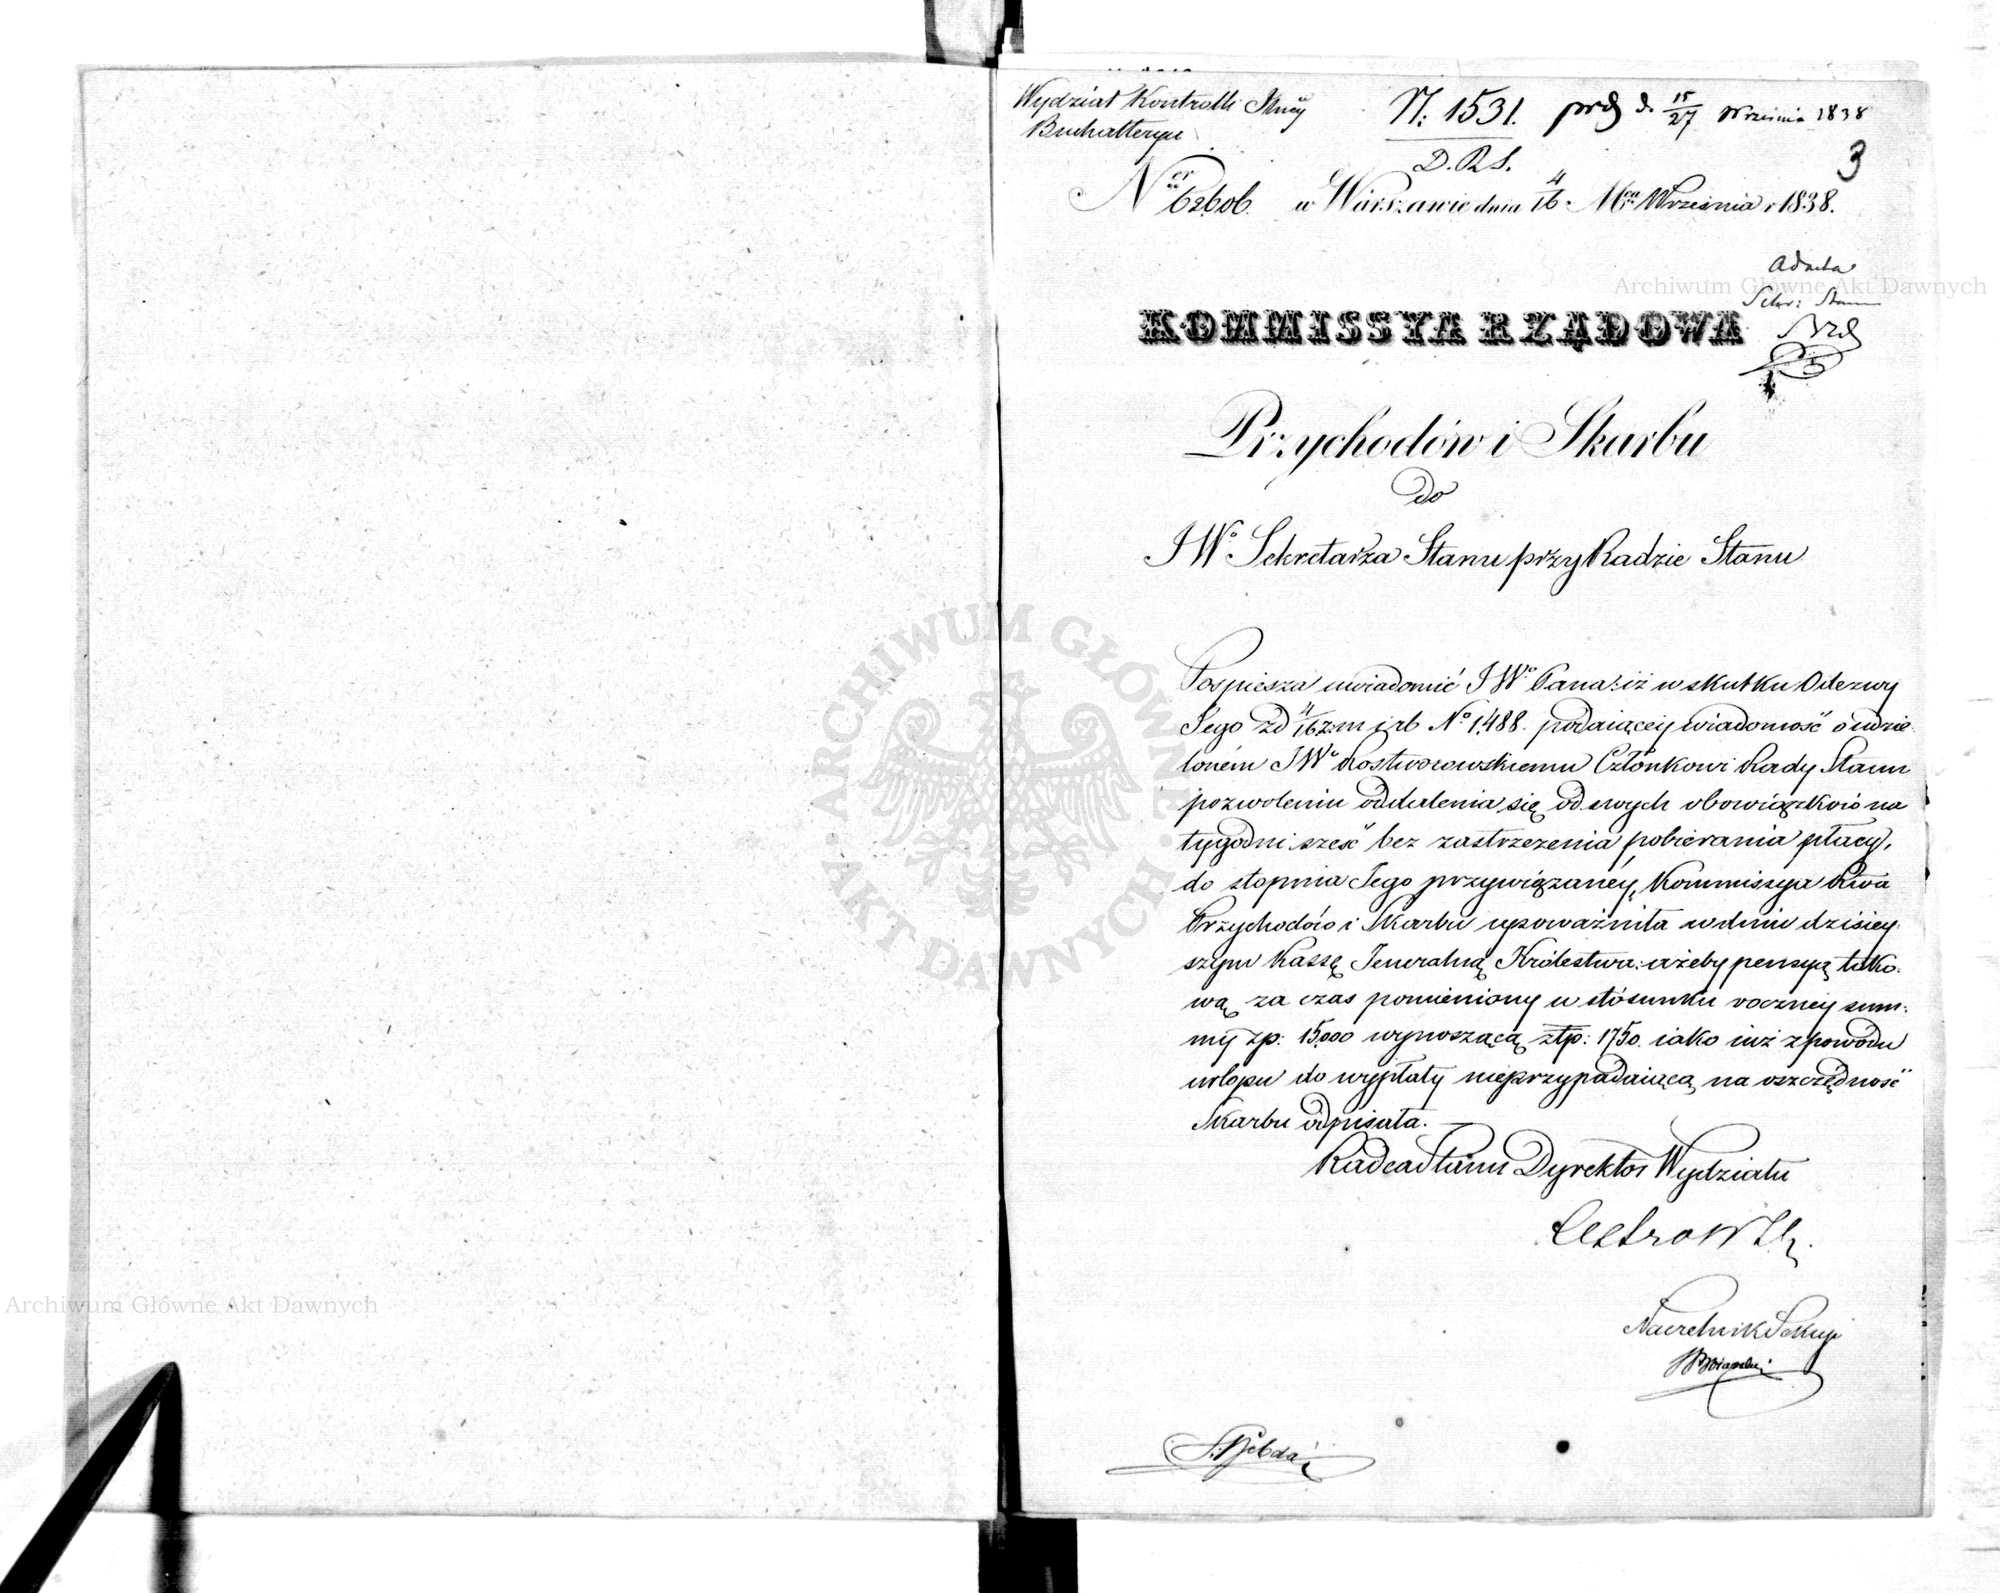 Wydział Kontrolli
Buchalteryi
N: 1531. d. 15/27 Września 1838
D.R.S.
3
Nr 62606. w Warszawie dnia 4/16 Mca Września r 1838.
Adacta
Sekr: Stanu
KOMMISSYA RZĄDOWA
Przychodów i Skarbu
do
JWo Sekretarza Stanu przy Radzie Stanu
Pospiesza uwiadomić JWo Pana: iż w skutku Odezwy
Jego z d 4/16 z. m i rb No 1488. podaiącey wiadomość o udzie-
loném JWu Rostworowskiemu Członkowi Rady Stanu
pozwoleniu oddalenia się od swych obowiązków na
tygodni sześć bez zastrzeżenia pobierania płacy,
do stopnia Jego przywiązanéy, Kommissya Rwa
Przychodów i Skarbu upoważniła w dniu dzisiey-
szym Kassę Jeneralną Królestwa: ażeby pensyą tako-
wą za czas pomieniony w stósunku roczney sum-
my zp: 15,000 wynoszącą złp: 1750. iako iuż z powodu
urlopu do wypłaty nieprzypadaiącą na oszczędność
Skarbu odpisała.
Radca Stanu Dyrektor Wydziału
Naczelnik Sekcyi
Archiwum Główne Akt Dawnych
Archiwum Główne Akt Dawnych
ARCHIWUM GŁÓWNE AKT DAWNYCH